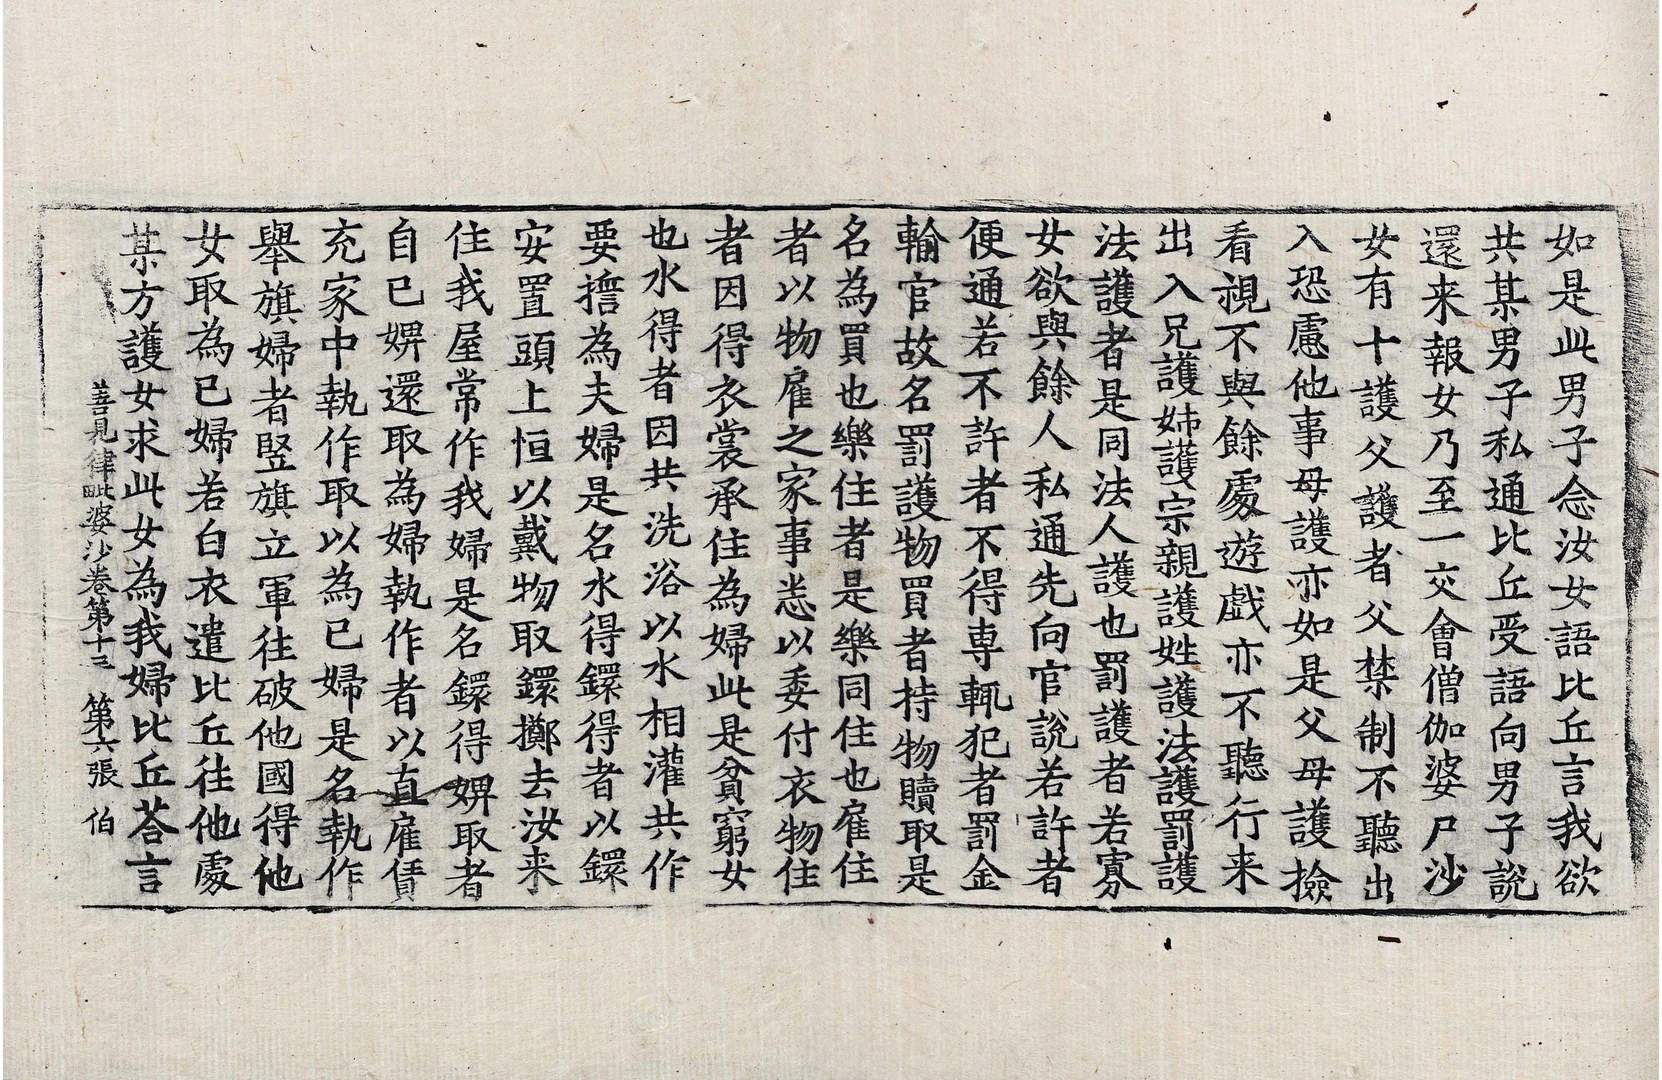 如是此男子念汝女語比丘言我欲
共某男子私通比丘受語向男子說
還来報女乃至一交會僧伽婆尸沙
女有十護父護者父禁制不聽出
入恐慮他事母護亦如是父母護撿
看視不與餘處遊戱亦不聽行来
出入兄護姊護宗親護姓護法護罰護
法護者是同法人護也罰護者若寡
女欲與餘人私通先向官說若許者
便通若不許者不得専輒犯者罰金
輸官故名罰護物買者持物贖取是
名為買也樂住者是樂同住也雇住
者以物雇之家事悉以委付衣物住
者因得衣裳承住為婦此是貧窮女
也水得者因共洗浴以水相灌共作
要擔為夫婦是名水得鐶得者以鐶
安置頭上恒以戴物取鐶擲去汝来
住我屋常作我婦是名鐶得婢取者
自已婢還取為婦執作者以直雇債
充家中執作取以為已婦是名執作
舉旗婦者竪旗立軍往破他國得他
女取為已婦若白衣遣比丘往他處
某方護女求此女為我婦比丘荅言
善見律毗婆沙卷第十三 第六張 伯